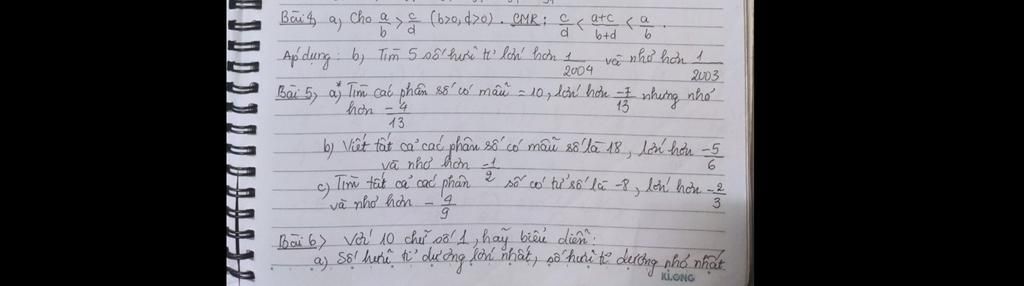 Bài 4, a) Cho a/b > c/d (b>0, d>0). CMR: c/d < a+c/b+d < a/b.
Áp dụng: b) Tìm 5 số hữu tỉ lớn hơn 1/2004 và nhỏ hơn 1/2003
Bài 5, a)* Tìm các phân số có mẫu = 10, lớn hơn -7/13 nhưng nhỏ
hơn -4/13
b) Viết tất cả các phân số có mẫu số là 18, lớn hơn -5/6
và nhỏ hơn -1/2
c) Tìm tất cả các phân số có tử số là -8, lớn hơn -2/3
và nhỏ hơn -4/9
Bài 6, Với 10 chữ số 1, hãy biểu diễn:
a) Số hữu tỉ dương lớn nhất, số hữu tỉ dương nhỏ nhất
KLONG